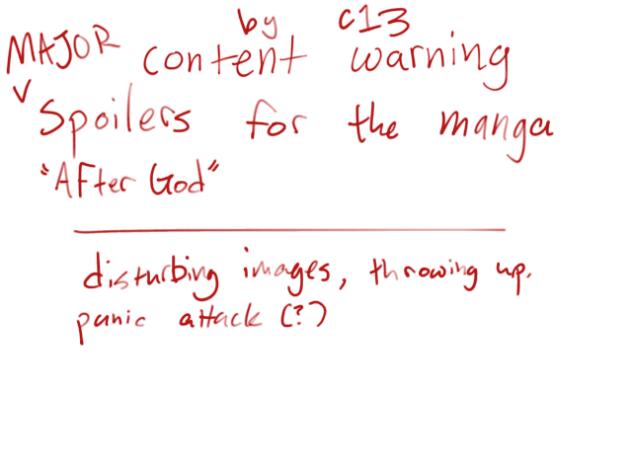 by c13
MAJOR content warning
v Spoilers for the manga
"After God"
disturbing images, throwing up.
panic attack (?)